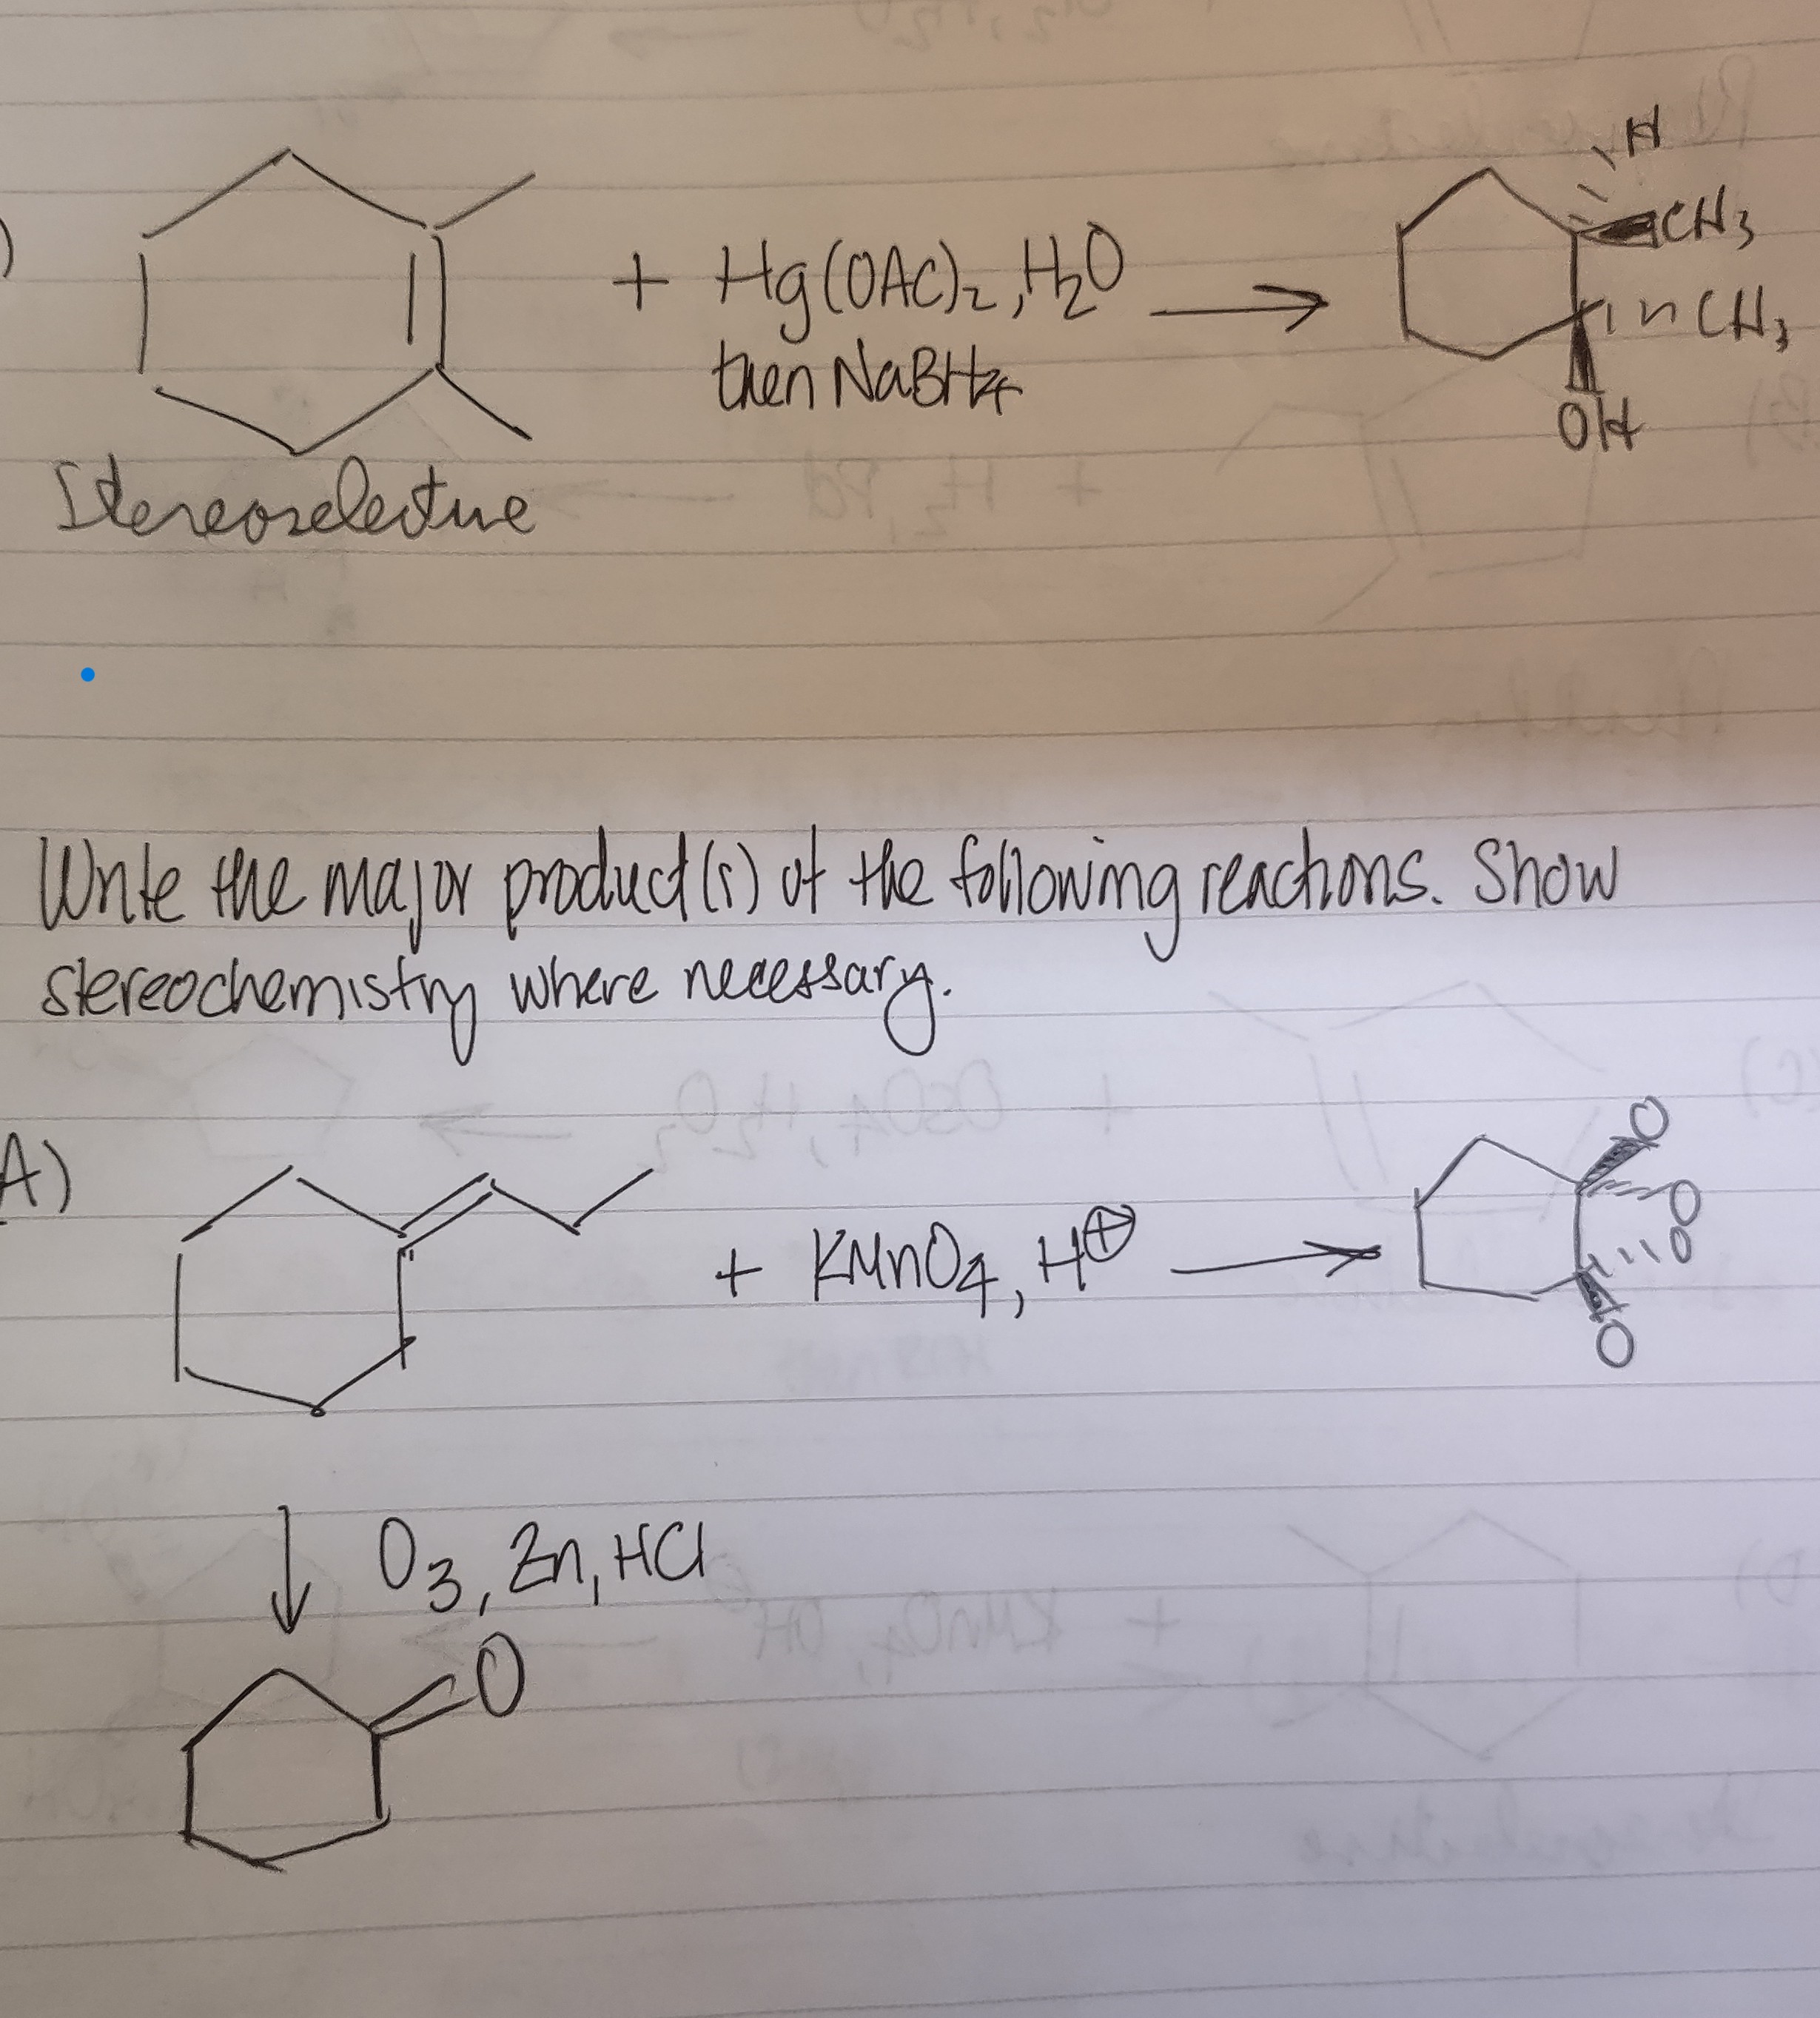 )
+ Hg(OAC)2, H2O
then NaBH4
H
CH3
CH3
OH
Stereoselective
Write the major product(s) of the following reactions. Show
stereochemistry where necessary.
A)
+ KMnO4, H⊕
O
O
O
O
O3, Zn, HCl
O